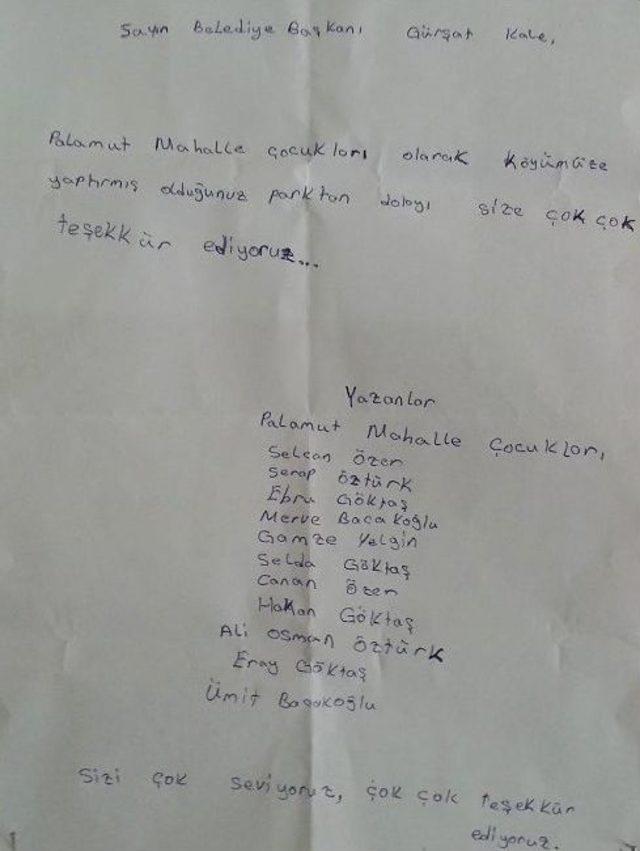 Sayın Belediye Başkanı Gürşat Kale,
Palamut Mahalle çocukları olarak köyümüze
yaptırmış olduğunuz parktan dolayı size çok çok
teşekkür ediyoruz...
Yazanlar
Palamut Mahalle Çocukları
Selcan Özen
Serap Öztürk
Ebru Göktaş
Merve Bacakoğlu
Gamze Yelgin
Selda Göktaş
Canan Özen
Hakan Göktaş
Ali Osman Öztürk
Eray Göktaş
Ümit Bacakoğlu
Sizi çok seviyoruz, çok çok teşekkür
ediyoruz.